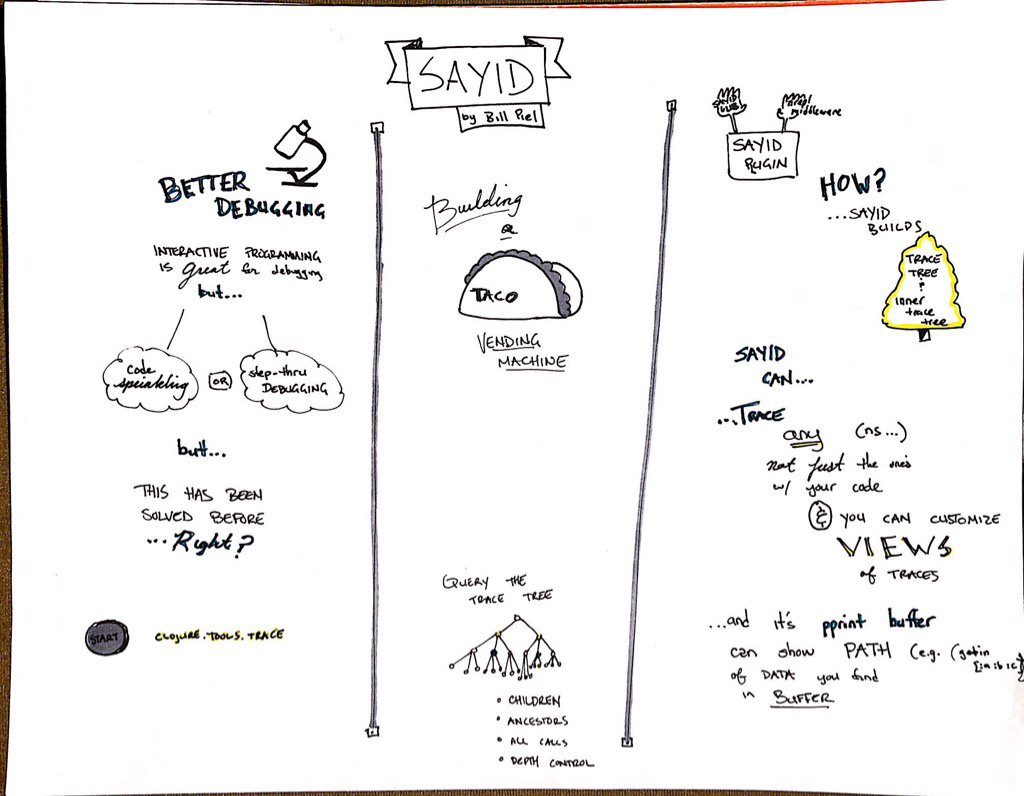 SAYID
by Bill Piel
BETTER
DEBUGGING
INTERACTIVE PROGRAMMING
is great for debugging
but...
code
sprinkling
OR
step-thru
DEBUGGING
but...
THIS HAS BEEN
SOLVED BEFORE
...Right?
START
CLOJURE.TOOLS.TRACE
Building
a
TACO
VENDING
MACHINE
QUERY THE
TRACE TREE
• CHILDREN
• ANCESTORS
• ALL CALLS
• DEPTH CONTROL
nrepl
middleware
SAYID
PLUGIN
HOW?
...SAYID
BUILDS
TRACE
TREE
?
inner
trace
tree
SAYID
CAN...
...TRACE
any (ns...)
not just the one's
w/ your code
& YOU CAN CUSTOMIZE
VIEWS
of TRACES
...and it's pprint buffer
can show PATH (e.g. (getin
[:a :b :c]
of DATA you find
in BUFFER